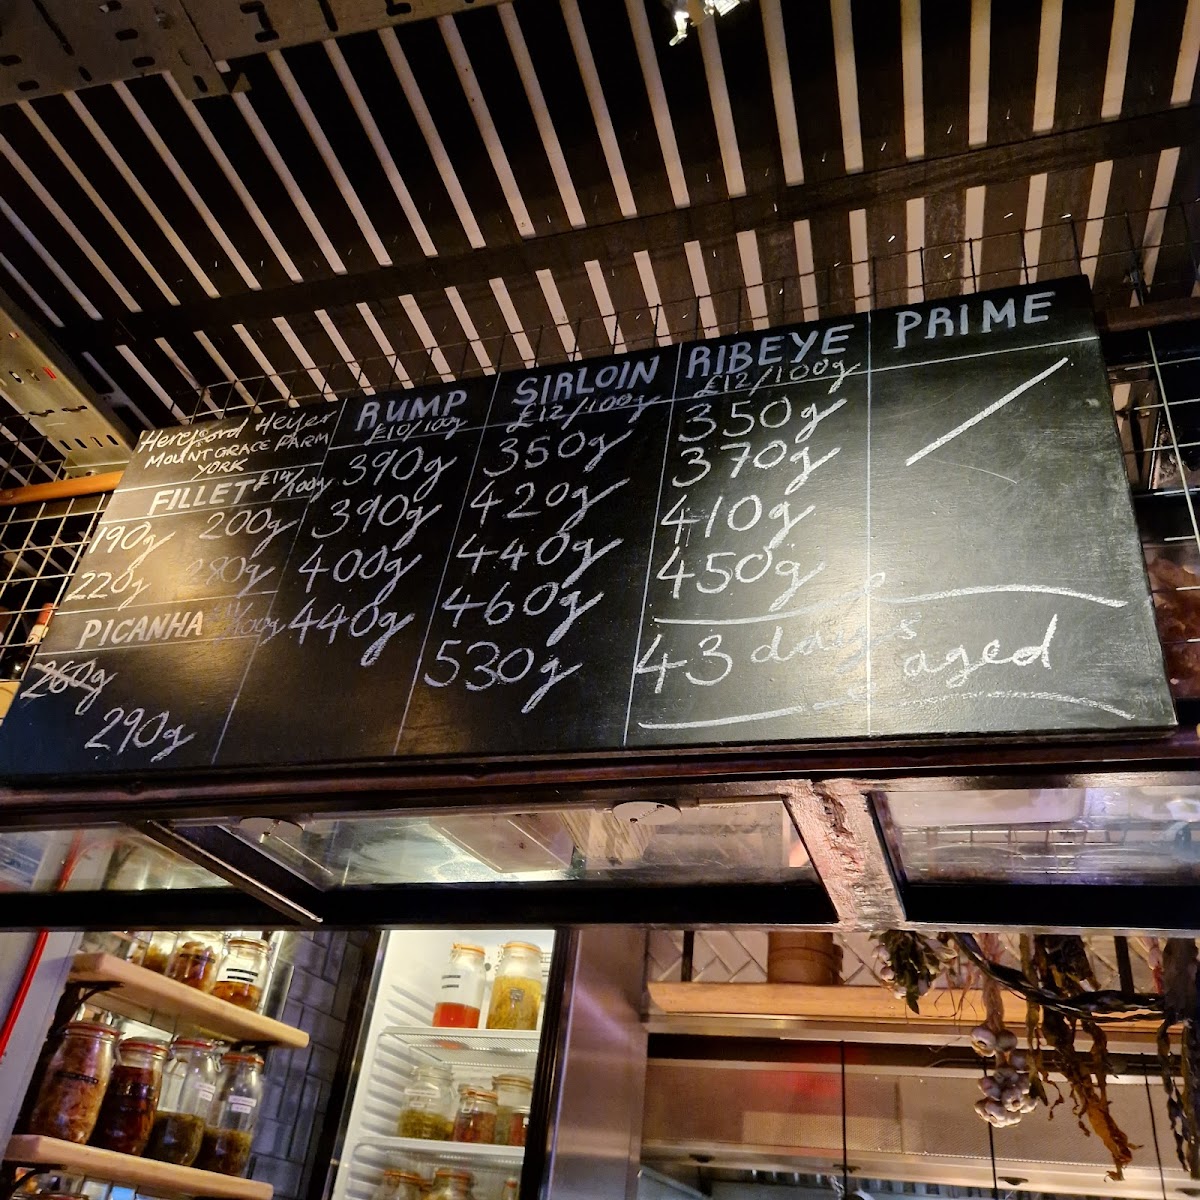 Hereford Heifer
MOUNT GRACE FARM
YORK
FILLET £14/100g
190g 200g
220g 280g
PICANHA /100g
260g
290g
RUMP
£10/100g
390g
390g
400g
440g
SIRLOIN
£12/100g
350g
420g
440g
460g
530g
RIBEYE
£12/100g
350g
370g
410g
450g
PRIME
43 days aged